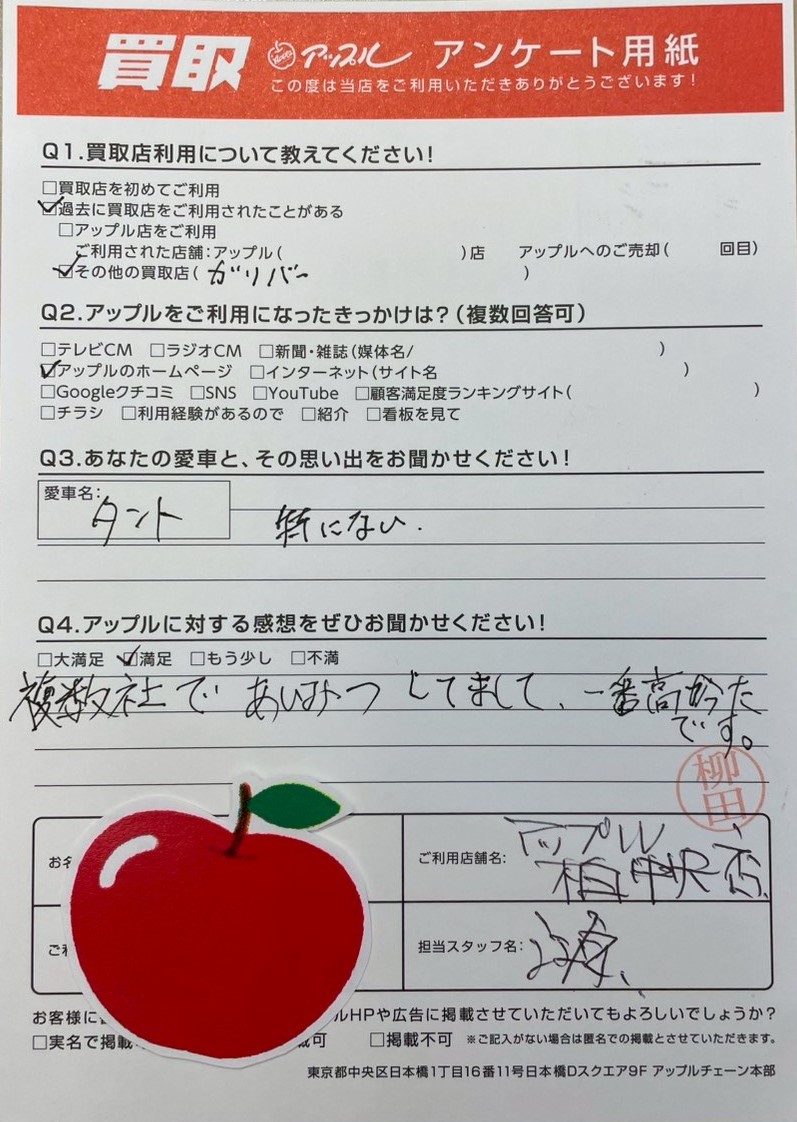 買取 アップル アンケート用紙
この度は当店をご利用いただきありがとうございます!
Q1.買取店利用について教えてください!
□買取店を初めてご利用
☑過去に買取店をご利用されたことがある
□アップル店をご利用
ご利用された店舗:アップル( )店 アップルへのご売却( 回目)
☑その他の買取店( ガリバー )
Q2.アップルをご利用になったきっかけは?(複数回答可)
□テレビCM □ラジオCM □新聞・雑誌(媒体名/ )
☑アップルのホームページ □インターネット(サイト名 )
□Googleクチコミ □SNS □YouTube □顧客満足度ランキングサイト( )
□チラシ □利用経験があるので □紹介 □看板を見て
Q3.あなたの愛車と、その思い出をお聞かせください!
愛車名:
タント 特にない.
Q4.アップルに対する感想をぜひお聞かせください!
□大満足 ☑満足 □もう少し □不満
複数社で あいみつ してまして、一番高かった
です。
柳田
お名
ご利用店舗名: アップル
柏中央店
ご利
担当スタッフ名:
お客様に ルHPや広告に掲載させていただいてもよろしいでしょうか?
□実名で掲載 可 □掲載不可 ※ご記入がない場合は匿名での掲載とさせていただきます。
東京都中央区日本橋1丁目16番11号日本橋Dスクエア9F アップルチェーン本部